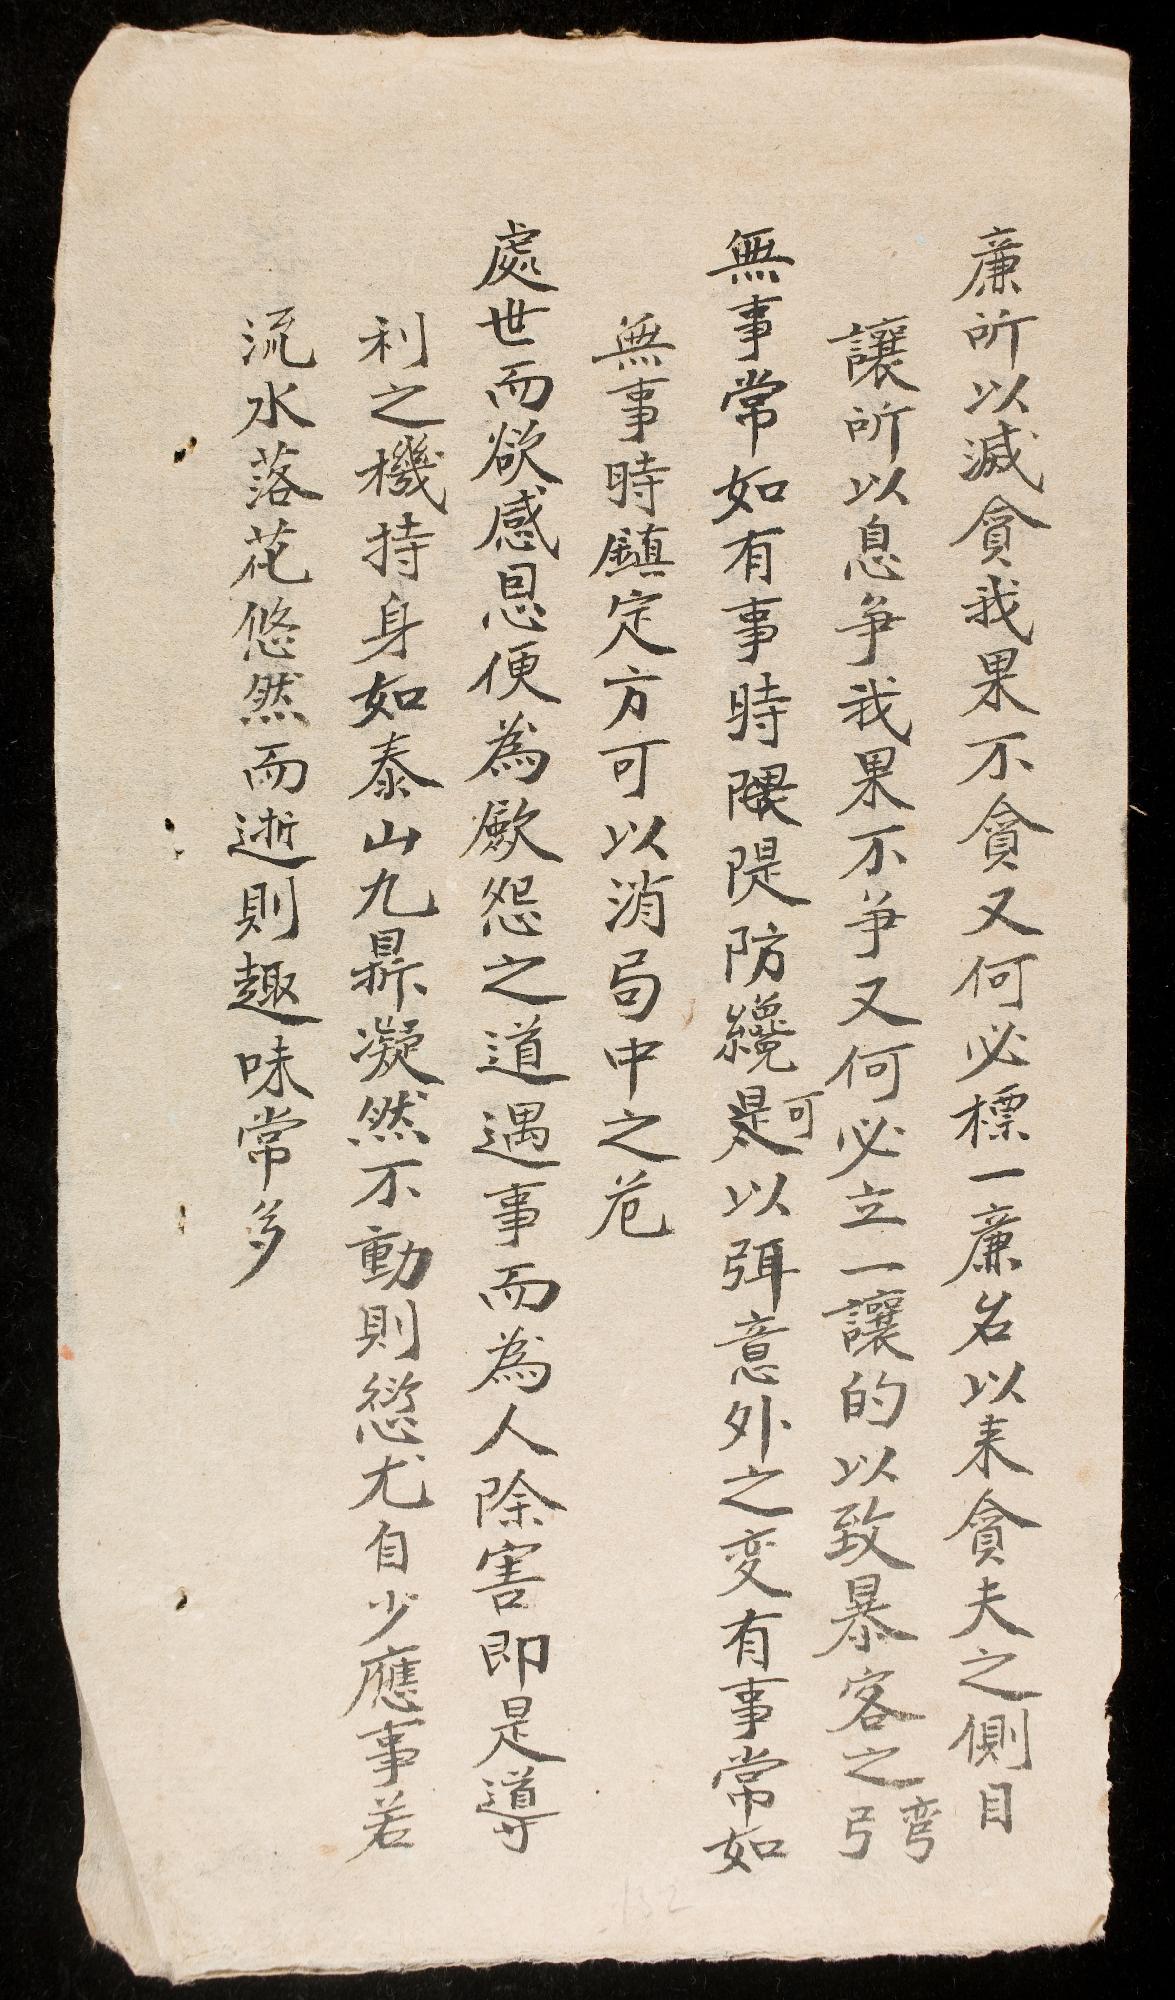 廉所以減貪我果不貪又何必標一廉名以来貪夫之側目
讓所以息争我果不争又何必立一讓的以致暴客之弯弓
無事常如有事時隄防纔可以弭意外之变有事常如
無事時鎮定方可以消局中之危
處世而欲感恩便為厥怨之道遇事而為人除害即是導
利之機持身如泰山九鼎凝然不動則愆尤自少應事若
流水落花悠然而逝則趣味常多
152